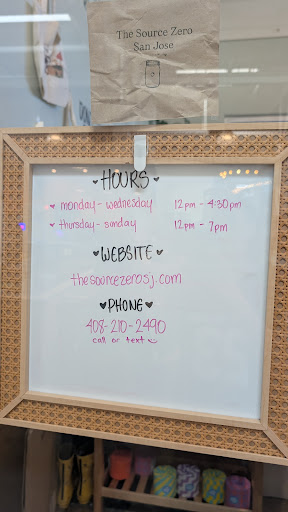 The Source Zero
San Jose
HOURS
monday - wednesday 12pm - 4:30pm
thursday - sunday 12pm - 7pm
WEBSITE
thesourcezerosj.com
PHONE
408-210-2490
call or text